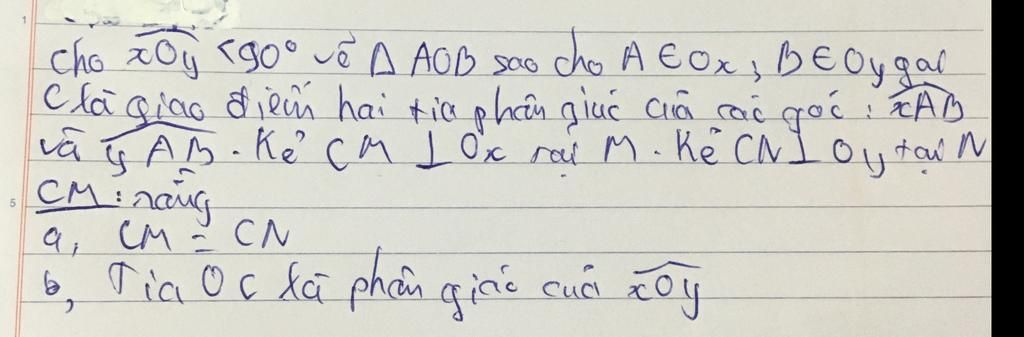 cho xOy <90° vẽ Δ AOB sao cho A ∈ Ox; B ∈ Oy gọi
C là giao điểm hai tia phân giác của các góc : xAB
và yAB. Kẻ CM ⊥ Ox tại M. Kẻ CN ⊥ Oy tại N
CM : rằng
a, CM = CN
b, Tia OC là phân giác của xOy